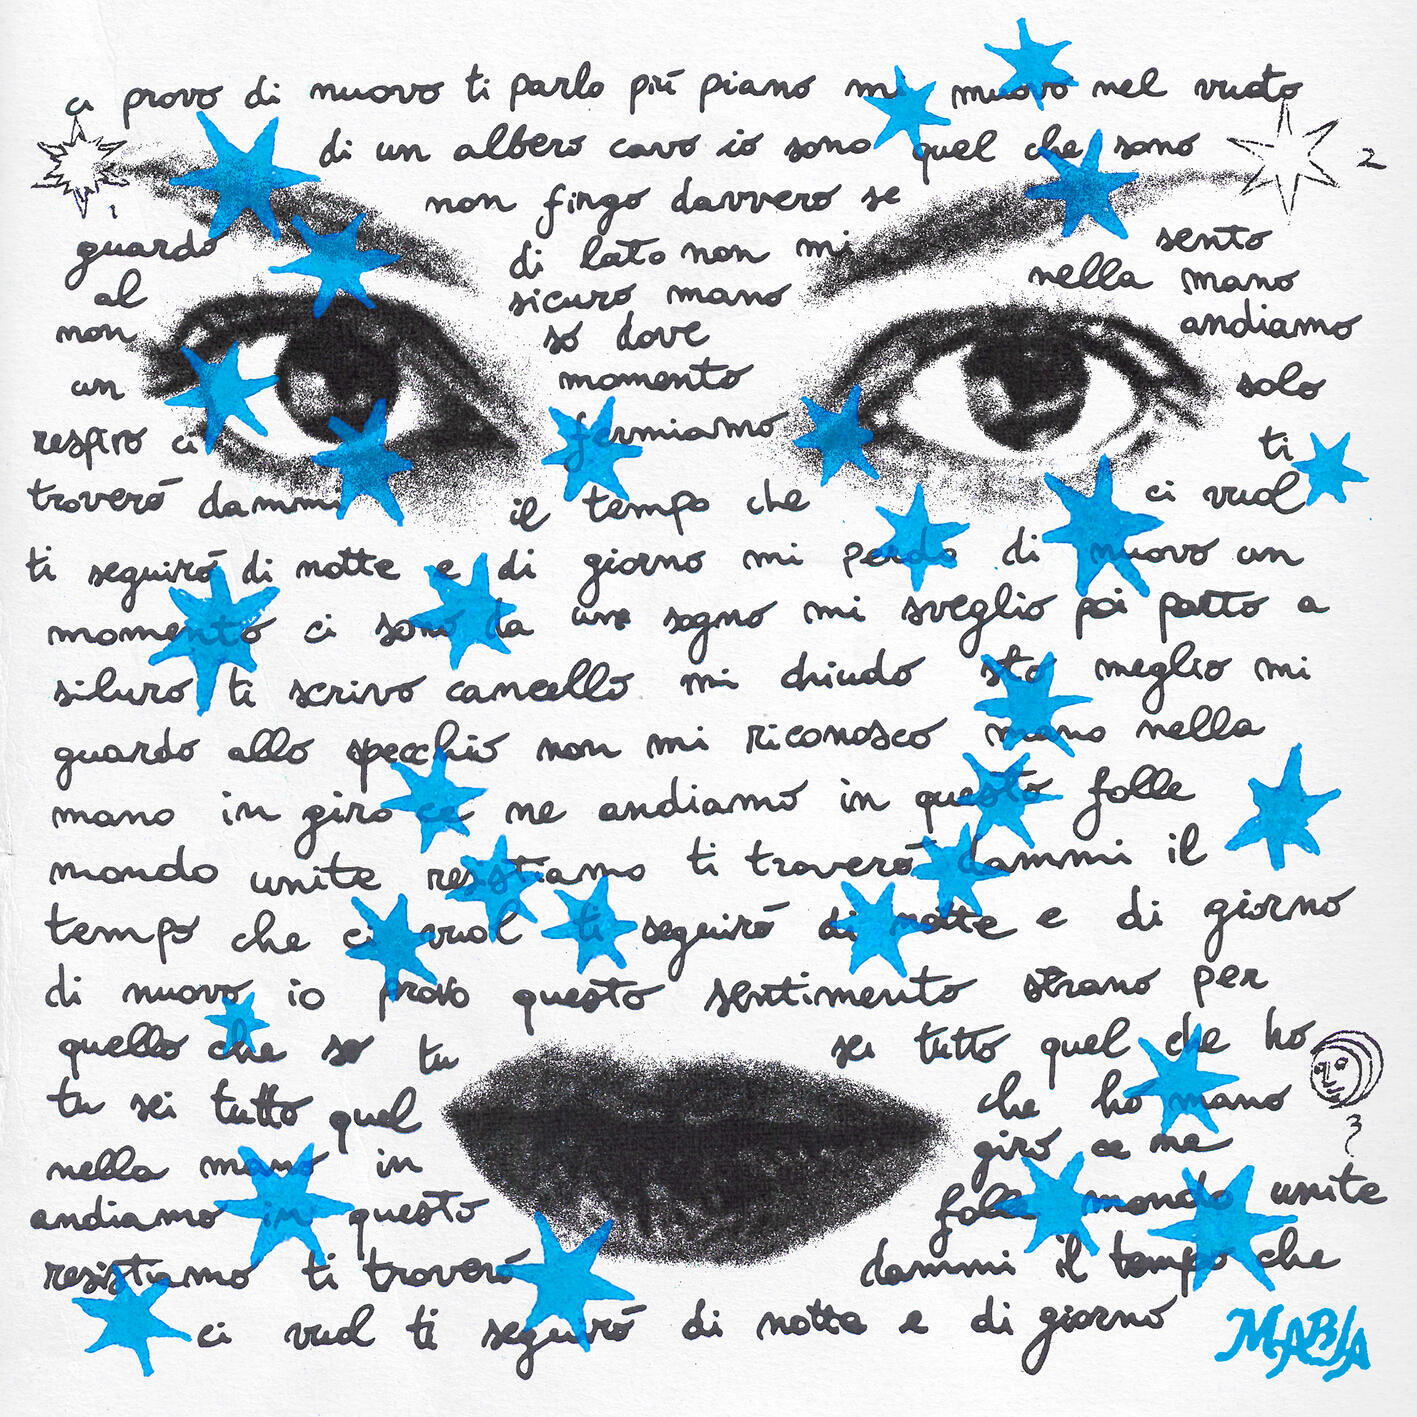 ci provo di nuovo ti parlo più piano mi muovo nel vuoto
di un albero cavo io sono quel che sono
non fingo davvero se
guardo di lato non mi sento
al sicuro mano nella mano
non so dove andiamo
un momento solo
respiro ci fermiamo ti
troverò dammi il tempo che ci vuol
ti seguirò di notte e di giorno mi perdo di nuovo un
momento ci sono da un sogno mi sveglio poi parto a
siluro ti scrivo cancello mi chiudo sto meglio mi
guardo allo specchio non mi riconosco mano nella
mano in giro ce ne andiamo in questo folle
mondo unite resistiamo ti troverò dammi il
tempo che ci vuol ti seguirò di notte e di giorno
di nuovo io provo questo sentimento strano per
quello che so tu sei tutto quel che ho
tu sei tutto quel che ho mano
nella mano in giro ce ne
andiamo in questo folle mondo unite
resistiamo ti troverò dammi il tempo che
ci vuol ti seguirò di notte e di giorno
1
2
3
MABIA